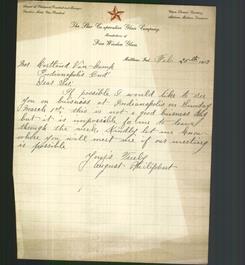 The Star Co-operative Glass Company,
Manufacturers of
Fine Window Glass
Feb. 25th
Mr Cortland Van Camp
Indianapolis Ind
Dear Sir
If possible I would like to see
you on business at Indianapolis on Sunday
March 1st, this is not a good business day
but it is impossible for me to leave
through the week, Kindly let me know
where you will meet me if our meeting
is possible
Yours Truly
August Philippart